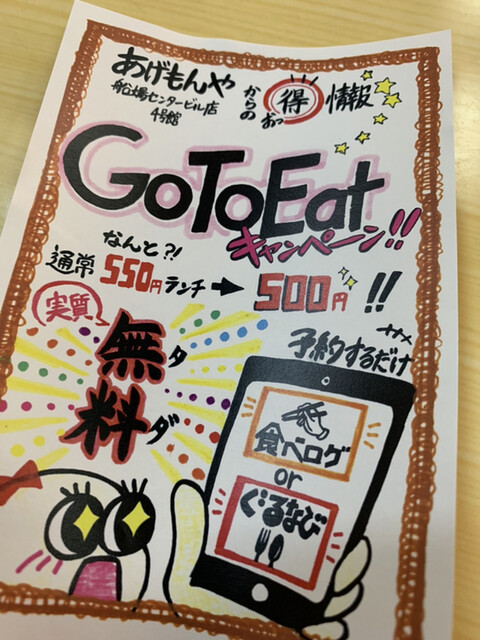 あげもんや
船場センタービル店
4号館
からの お得 情報
GoToEat
キャンペーン!!
なんと?!
通常 550円ランチ➡500円!!
実質
無料
タダ
予約するだけ
食べログ
or
ぐるなび